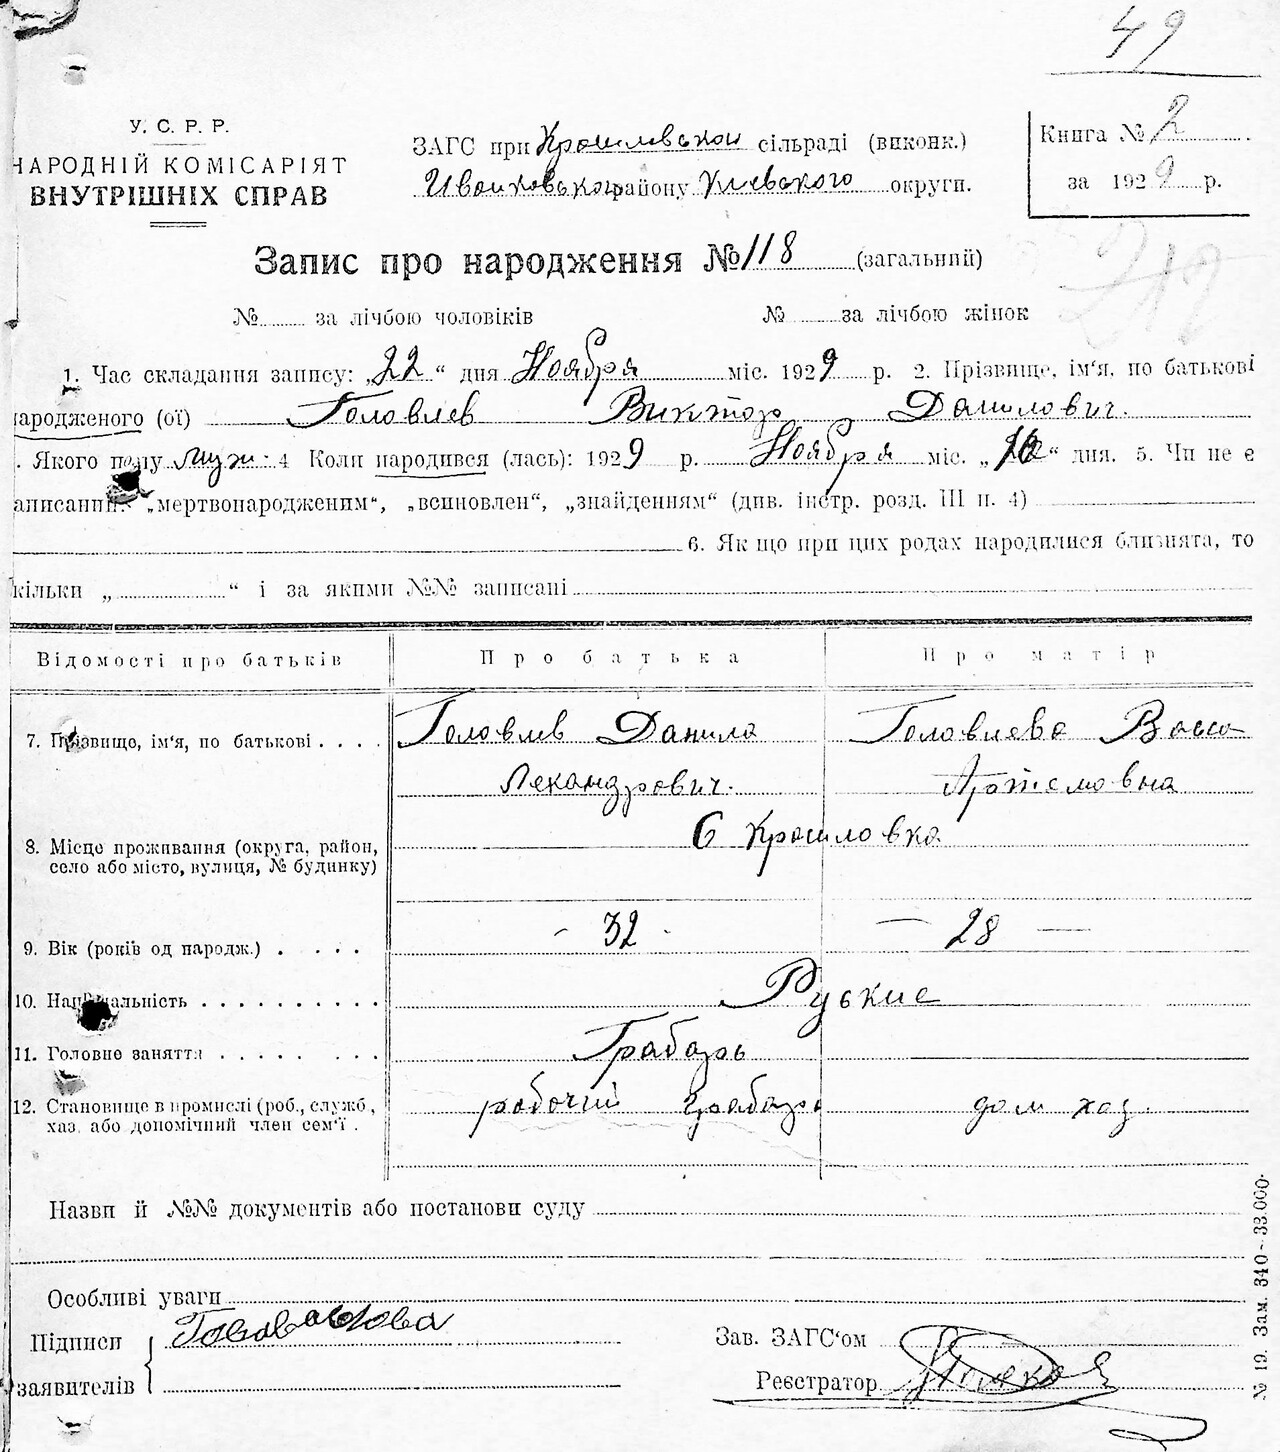 49
У. С. Р. Р.
НАРОДНІЙ КОМІСАРІЯТ
ВНУТРІШНІХ СПРАВ
ЗАГС при Крошлевской сільраді (виконк.)
Иванковского району Киевского округи.
Книга № 2
за 1929 р.
Запис про народження № 118 (загальний)
№ за лічбою чоловіків № за лічбою жінок
1. Час складання запису: „22“ дня Ноября міс. 1929 р. 2. Прізвище, ім'я, по батькові
народженого (ої) Головлев Виктор Данилович.
. Якого полу муж. 4 Коли народився (лась): 1929 р. Ноября міс. „ “ дня. 5. Чи не є
аписаний: „мертвонародженим“, „всиновлен“, „знайденням“ (див. інстр. розд. III п. 4)
6. Як що при цих родах народилися близнята, то
кільки „ “ і за якими №№ записані
Відомості про батьків Про батька Про матір
7. Прізвище, ім'я, по батькові . . . . Головлев Данило Головлева Васса
Лександрович. Артемовна
8. Місце проживання (округа, район, С Крошловка
село або місто, вулиця, № будинку)
9. Вік (років од народж.) . . . . - 32 - — 28 —
10. Національність . . . . . . . . . . Руские
11. Головне заняття . . . . . . . . Грабарь
12. Становище в промислі (роб., служб., рабочий грабарь дом хоз.
хаз. або допомічний член сем'ї .
Назви й №№ документів або постанови суду
Особливі уваги
Підписи
заявителів
Зав. ЗАГС'ом
Реєстратор
№ 19. Зам. 340 - 33.000.